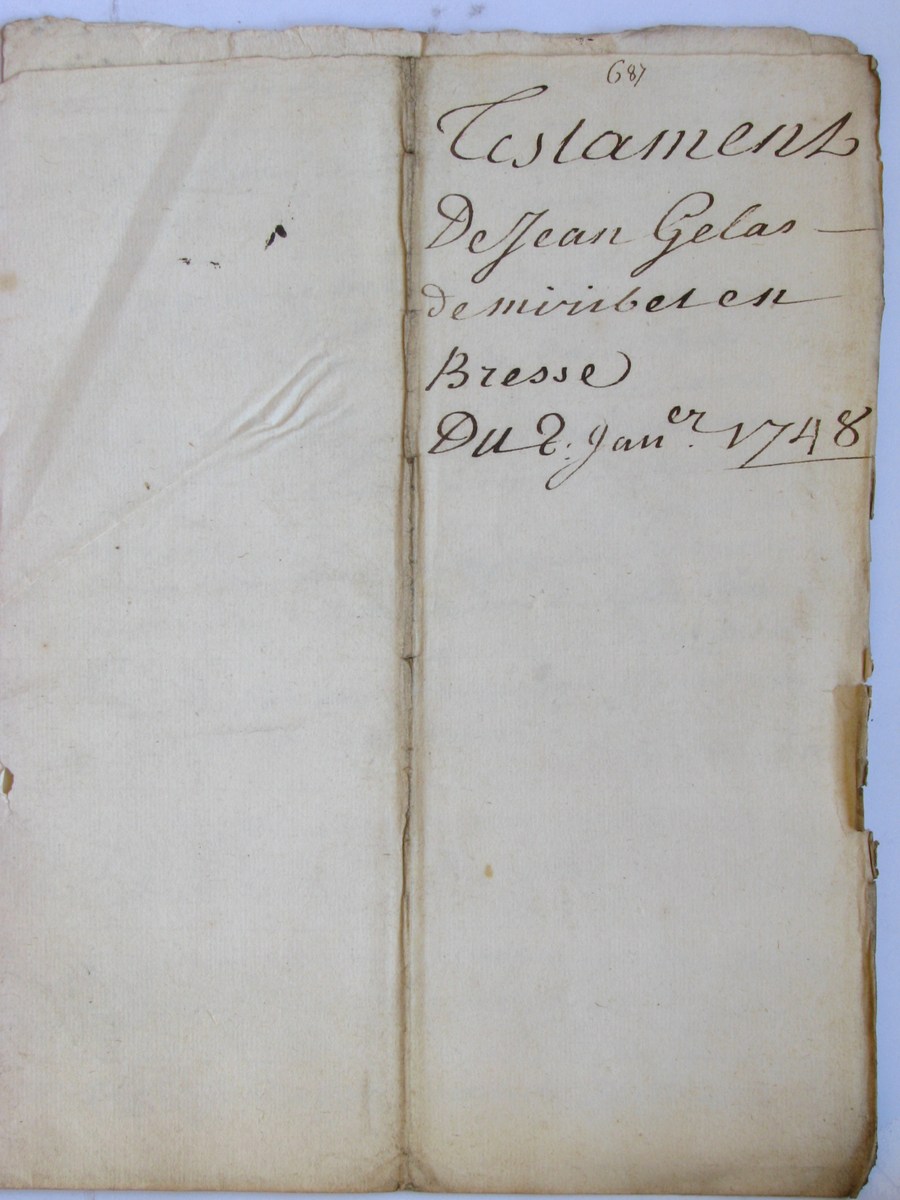 687
Testament
De Jean Gelas
de miribel en
Bresse
Du 2. Jan.er 1748